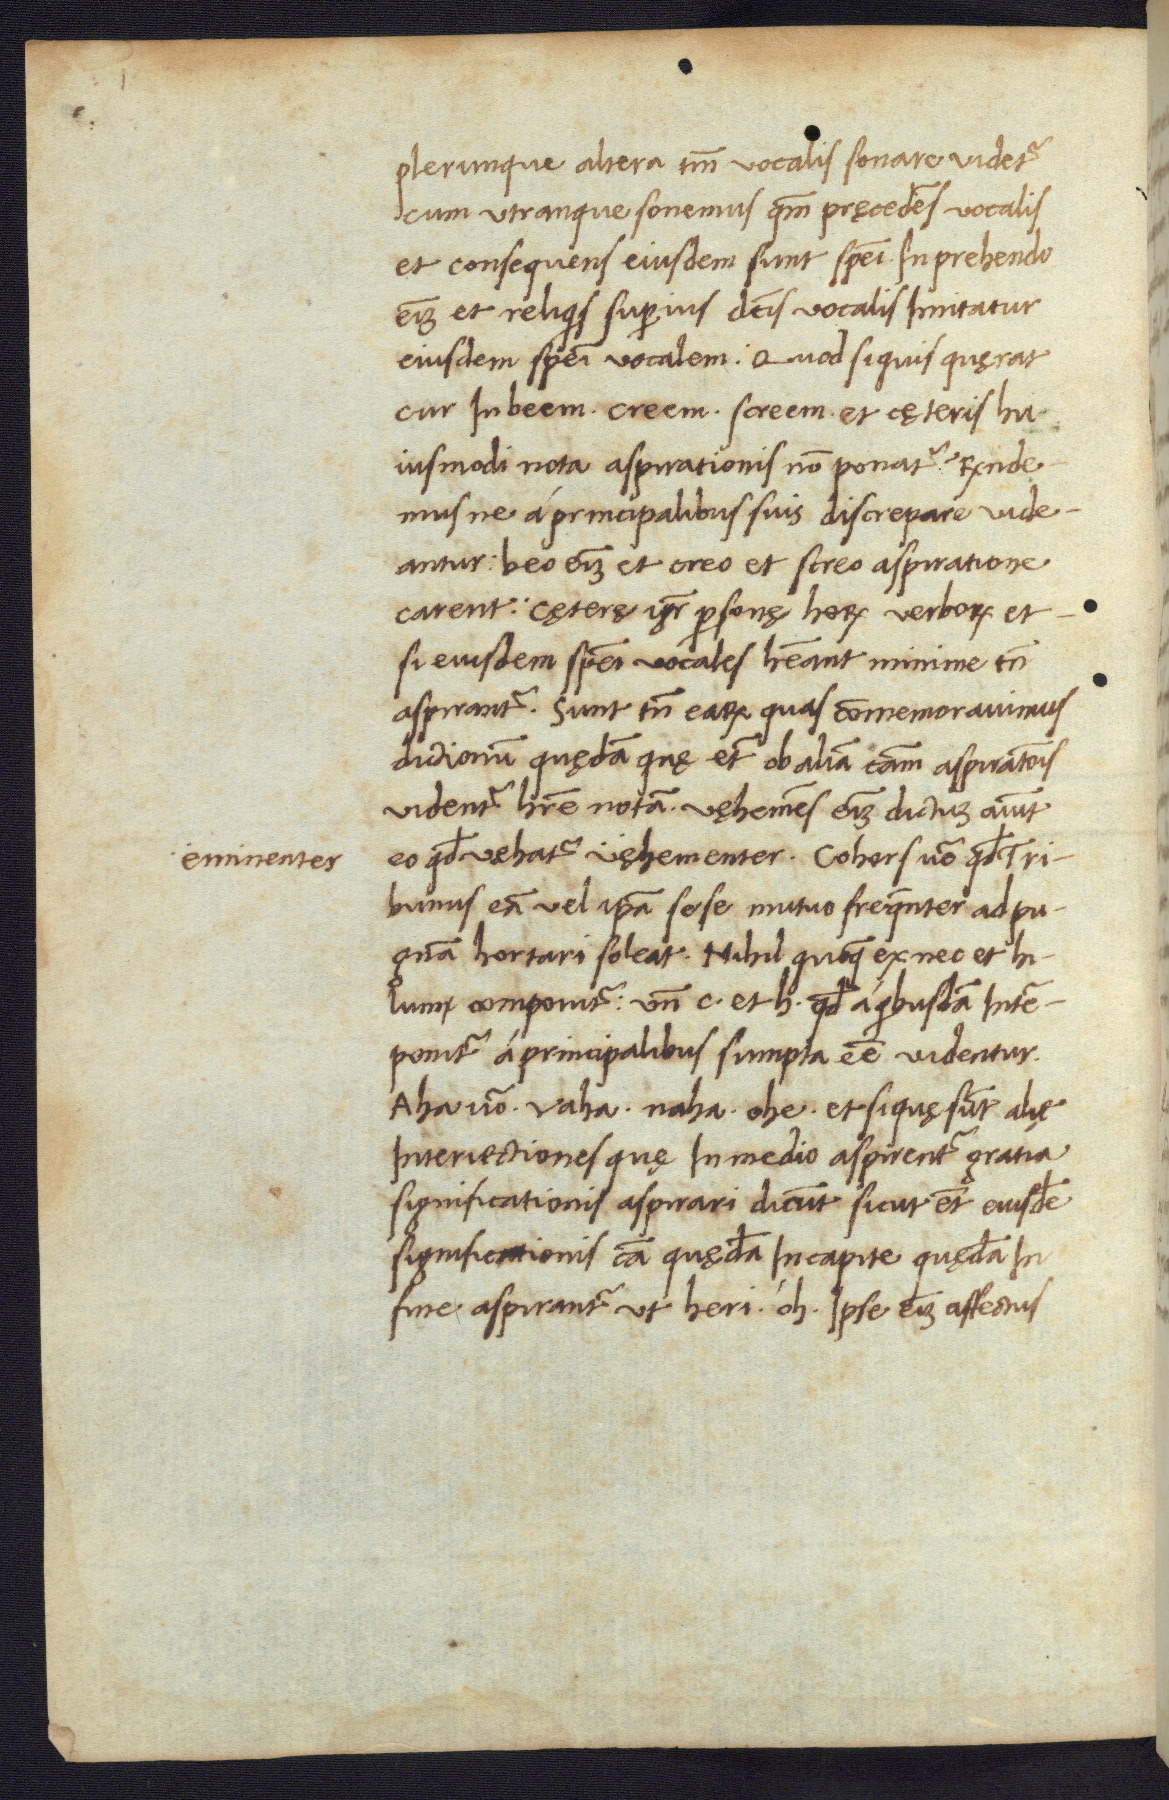 plerunque altera tm̄ vocalis sonare videt᷑
cum vtranque sonemus qm̄ pręcedēs vocalis
et consequens eiusdem sunt spēi. In prehendo
eīꝫ et reliqⁱs supius dcīs vocalis Imitatur
eiusdem spēi vocalem. Quod siquis quęrat
cur In beem. creem. screem. et cęteris hu
iusmodi nota aspirationis nō ponat᷑. Rx̄nde-
mus ne á principalibus suis discrepare vide-
antur: beo eīꝫ et creo et screo aspiratione
carent: cęterę igr̄ ꝑsonę hoꝝ verboꝝ et-
si eiusdem spēi vocales hēant minime tn̄
aspirant᷑. Sunt tn̄ eaꝝ quas commemorauimus
dictionū quędā quę et̄ ob aliā cām aspiratōis
vident᷑ hr̄e notā. vęhemēs eīꝫ dictuꝫ aiūt
eo qd̄ vęhat᷑ vęhementer. Cohors uō qd̄ Tri-
éminenter
bunus eā vel ipā sese mutuo freq̄nter ad pu-
gnā hortari soleat. Nihil quoq̄ ex nec et hi-
lum componit᷑: vn̄ c. et h. qd̄ á qⁱbusdā Intē-
ponit᷑ á principalibus sumpta eē videntur.
Aha uō. vaha. naha. ohe. et siquę sūt alię
Interiectiones quę In medio aspirent᷑ gratia
significationis aspirari dicūt sicut et̄ eiusdē
significationis cā quędā In capite quędā In
fine aspirant᷑ vt heri. óh. Ipse eīꝫ affectus